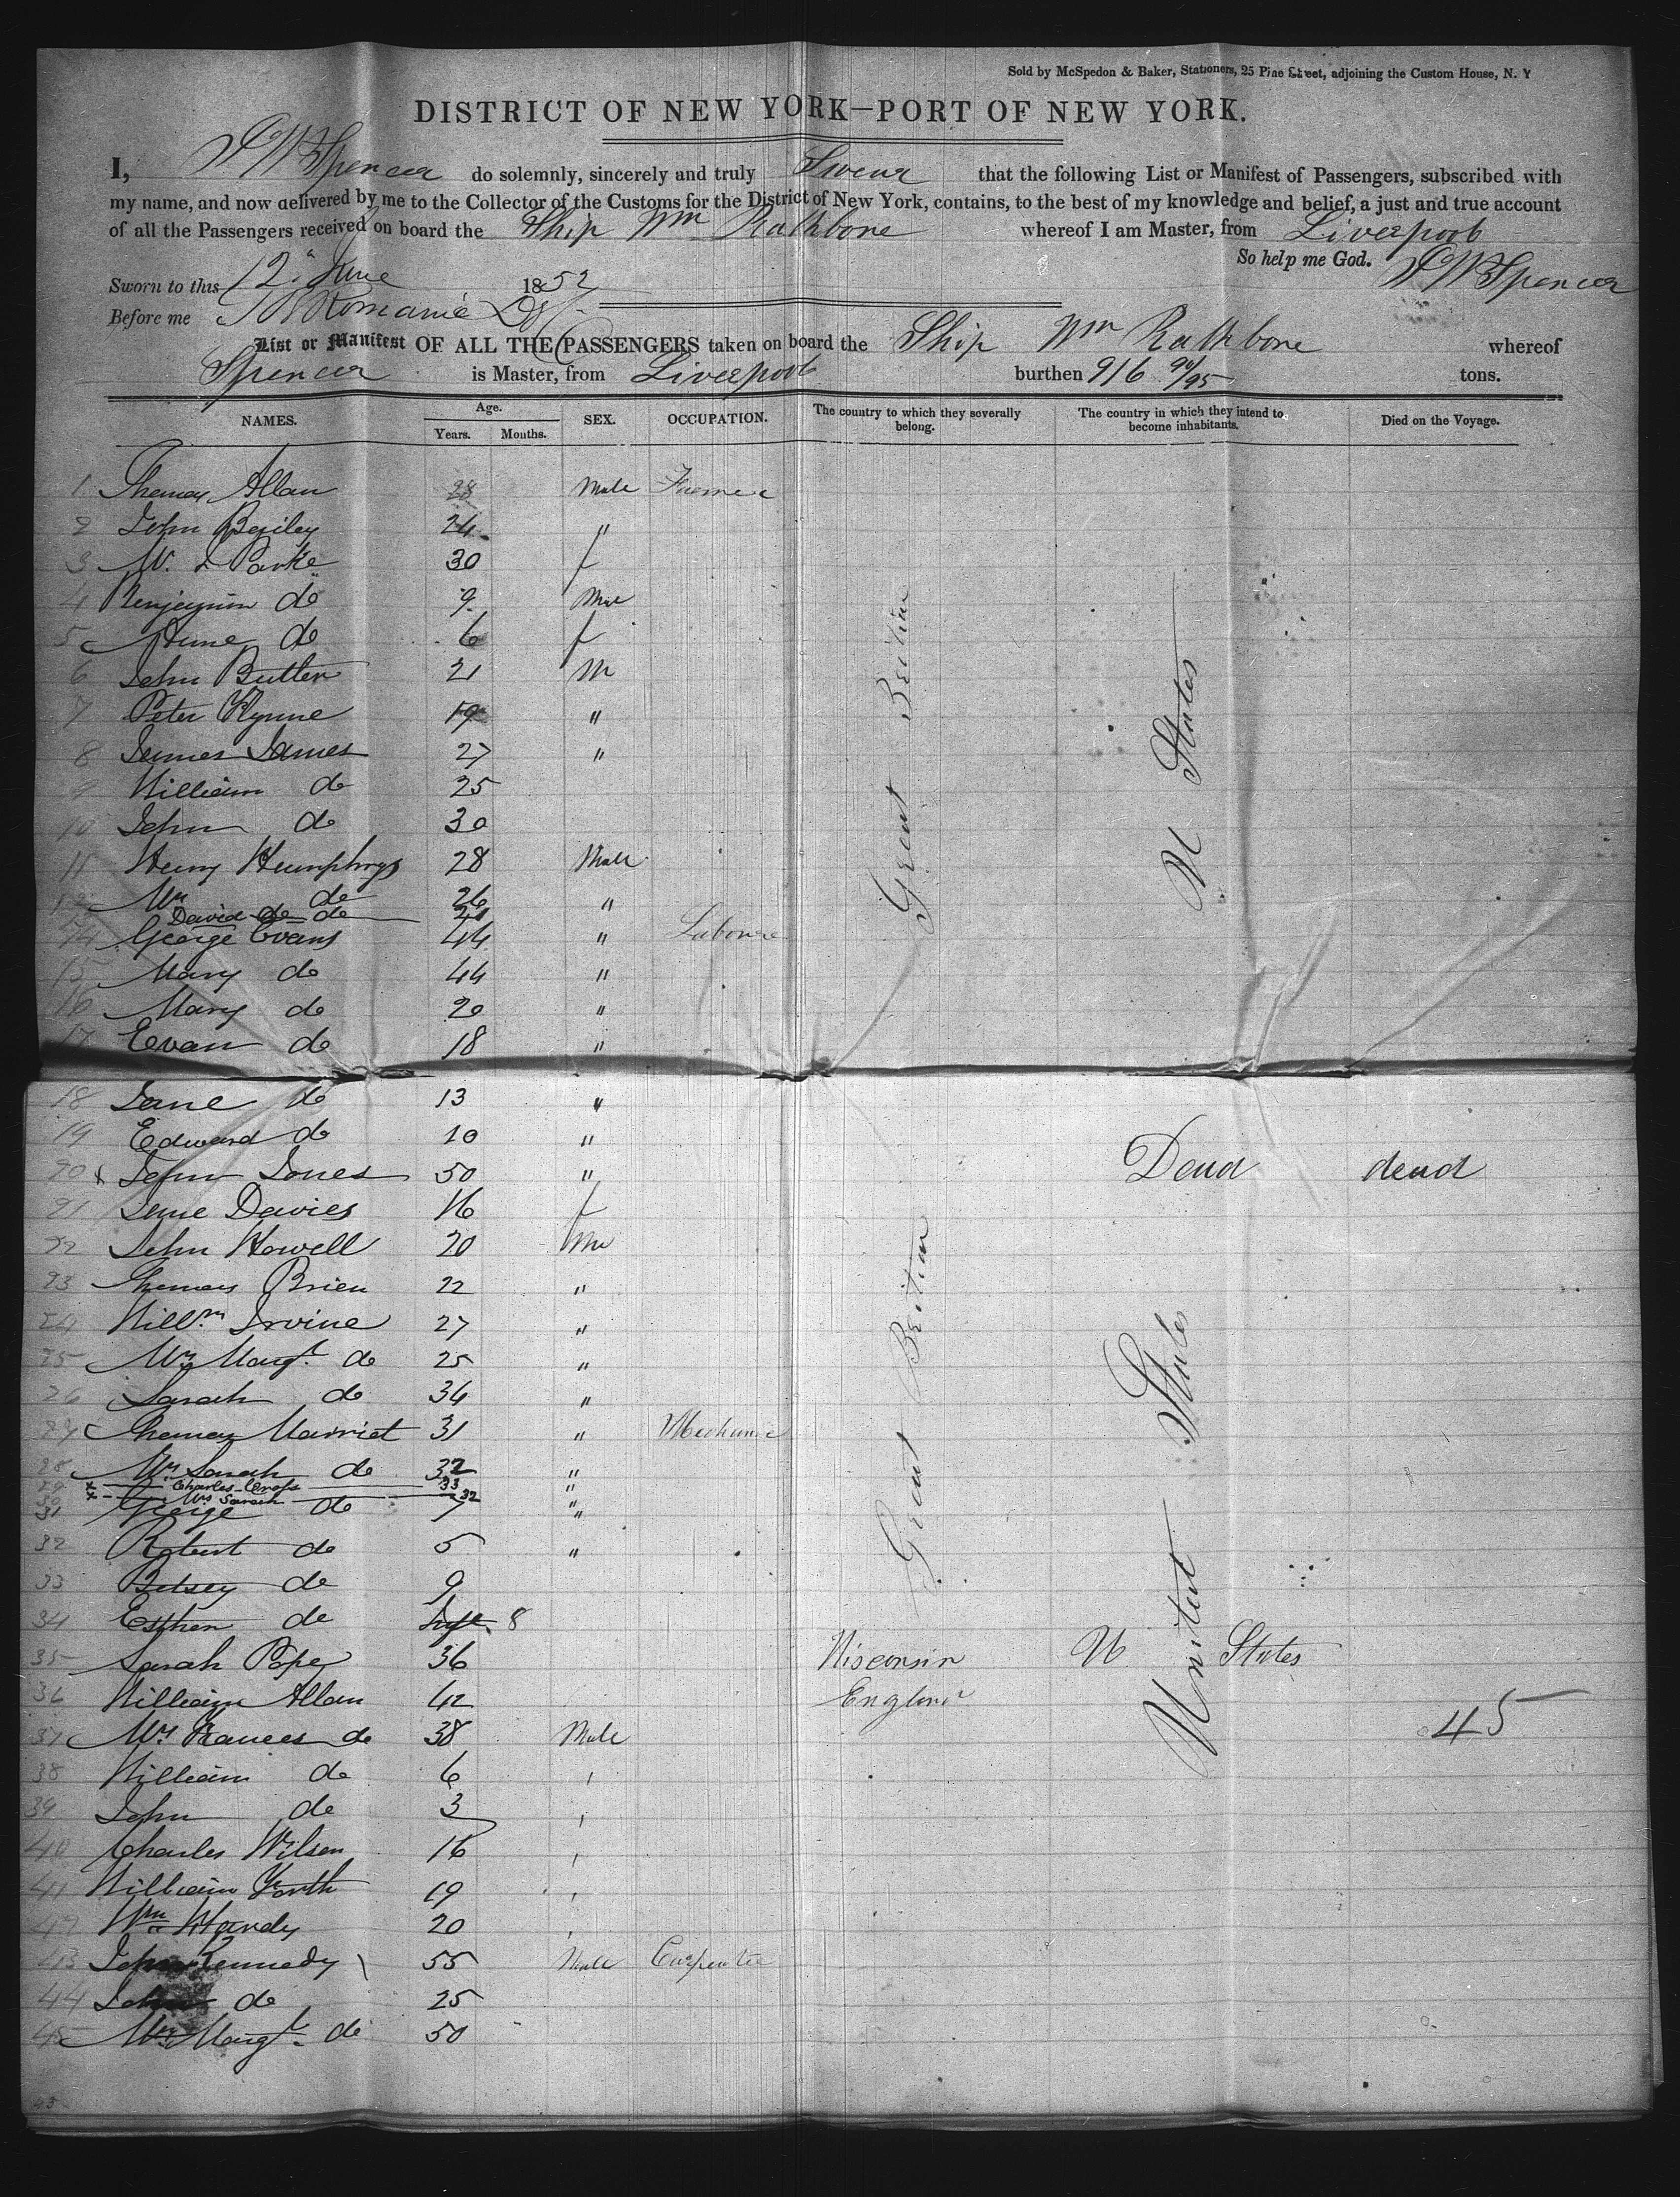 Sold by McSpedon & Baker, Stationers, 25 Pine Street, adjoining the Custom House, N. Y
DISTRICT OF NEW YORK—PORT OF NEW YORK.
I, Spencer do solemnly, sincerely and truly Swear that the following List or Manifest of Passengers, subscribed with
my name, and now delivered by me to the Collector of the Customs for the District of New York, contains, to the best of my knowledge and belief, a just and true account
of all the Passengers received on board the Ship Wm Rathbone whereof I am Master, from Liverpool
So help me God.
Sworn to this 12 June 1852 Spencer
Before me
List or Manifest OF ALL THE PASSENGERS taken on board the Ship Wm Rathbone whereof
Spencer is Master, from Liverpool burthen 916 90/95 tons.
NAMES. Age. Years. Months. SEX. OCCUPATION. The country to which they severally belong. The country in which they intend to become inhabitants. Died on the Voyage.
1 Thomas Allan 28 Male Farmer
2 John 24 "
3 30 f
4 Benjamin do 9 Male
5 do 6 f
6 John Butler 21 M
7 Peter 19 "
8 James James 27 "
9 William do 25
10 John do 30
11 Henry Humphrys 28 Male
12 Wm do 26 "
David do do 21
14 George Evans 44 " Labourer
15 Mary do 44 "
16 Mary do 20 "
17 Evan do 18 "
Great Britain
U States
18 Jane do 13 "
19 Edward do 10 "
20 x John Jones 50 " Dead dead
21 Jane Davies 16 f
22 John Howell 20 Me
23 Thomas Brien 22 "
24 Willm Irvine 27 "
25 Mrs Margt do 25 "
26 Sarah do 34 "
27 Thomas Marriot 31 " Mechanic
28 Mrs Sarah do 32 "
29 x Charles Cross 33 "
30 x Mrs Sarah 32
31 George do 7 "
32 Robert do 5 "
33 Betsey do 9
34 Esther do Inft 8
35 Sarah Pope 36 Wisconsin U States
36 William Allan 42 England
37 Mrs Frances do 38 Male 45
38 William do 6
39 John do 3
40 Charles Wilson 16
41 William 19
42 Wm Handy 20
43 John Kennedy 55 Male Carpenter
44 John do 25
45 Mrs Margt do 50
Great Britain
United States